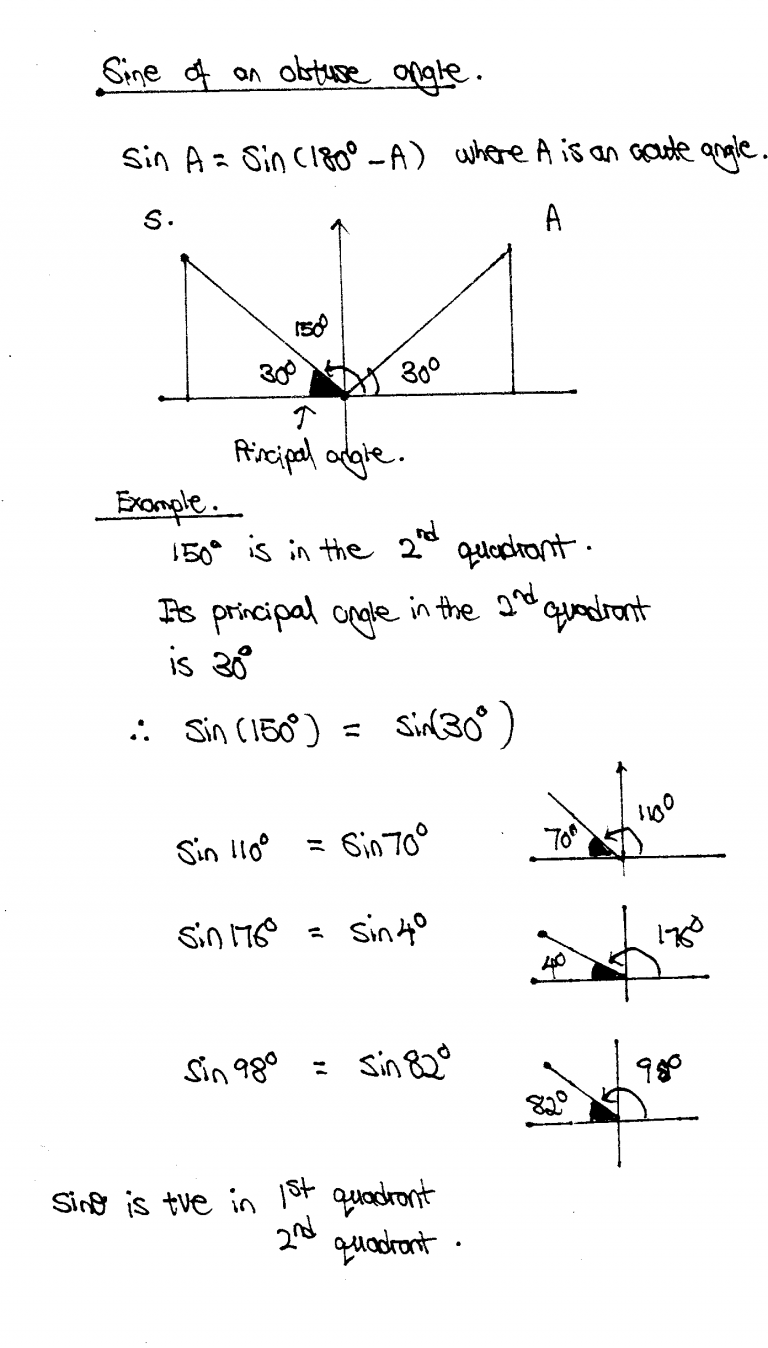 Sine of an obtuse angle.
Sin A = Sin (180° - A) where A is an acute angle.
S. A
150°
30° 30°
Principal angle.
Example.
150° is in the 2nd quadrant.
Its principal angle in the 2nd quadrant
is 30°
∴ Sin (150°) = Sin(30°)
Sin 110° = Sin 70° 70° 110°
Sin 176° = Sin 4° 4° 176°
Sin 98° = Sin 82° 82° 98°
Sinθ is +ve in 1st quadrant
2nd quadrant.